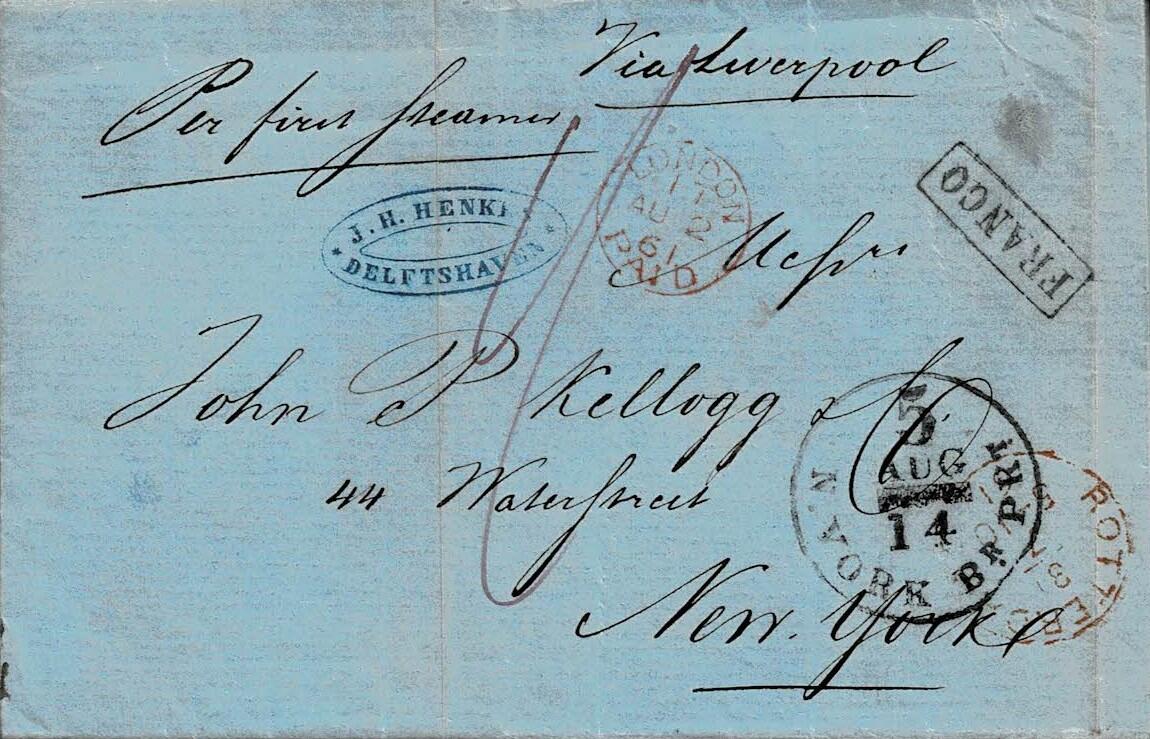 Via Liverpool
Per first Steamer
J. H. HENKES
* DELFTSHAVEN *
LONDON
AU 2
61
PAID
FRANCO
Messrs
John P Kellogg & Co.
44 Waterstreet
New York
5
AUG
14
N. YORK BR. PKT.
ROTTERDAM